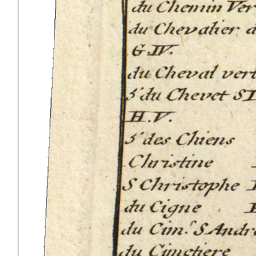 du Chemin Ver
du Chevalier d
G.IV.
du Cheval vert
5.ᵉ du Chevet S L
H.V.
5.ᵉ des Chiens
Christine
S Christophe
du Cigne
du Cim.ᵉ S Andr
du Cimetiere